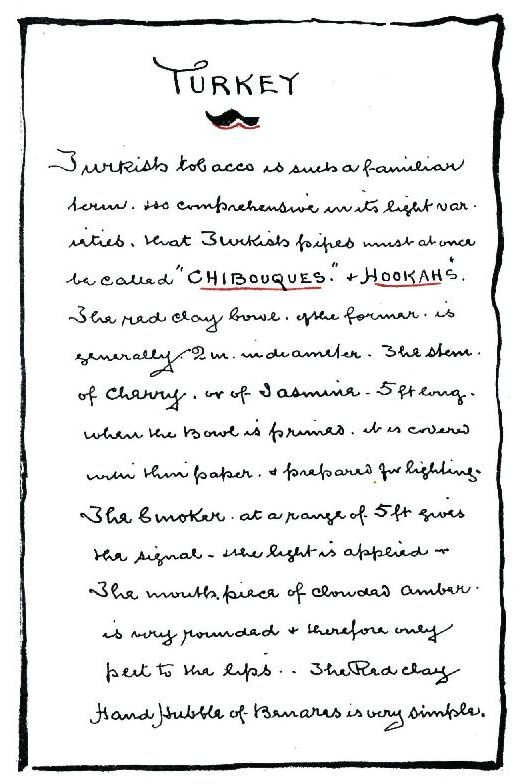 TURKEY
Turkish tobacco is such a familiar
term. so comprehensive in its light var.
ieties. that Turkish pipes must at once
be called "CHIBOUQUES." & HOOKAHS".
The red clay bowl. of the former. is
generally 2 in. in diameter. The stem.
of Cherry. or of Jasmine - 5 ft long.
when the Bowl is primed. it is covered
with thin paper. & prepared for lighting.
The Smoker. at a range of 5 ft gives
the signal - the light is applied -
The mouth. piece of clouded amber.
is very rounded & therefore only
put to the lips . . The Red clay
Hand Hubble of Benares is very simple.